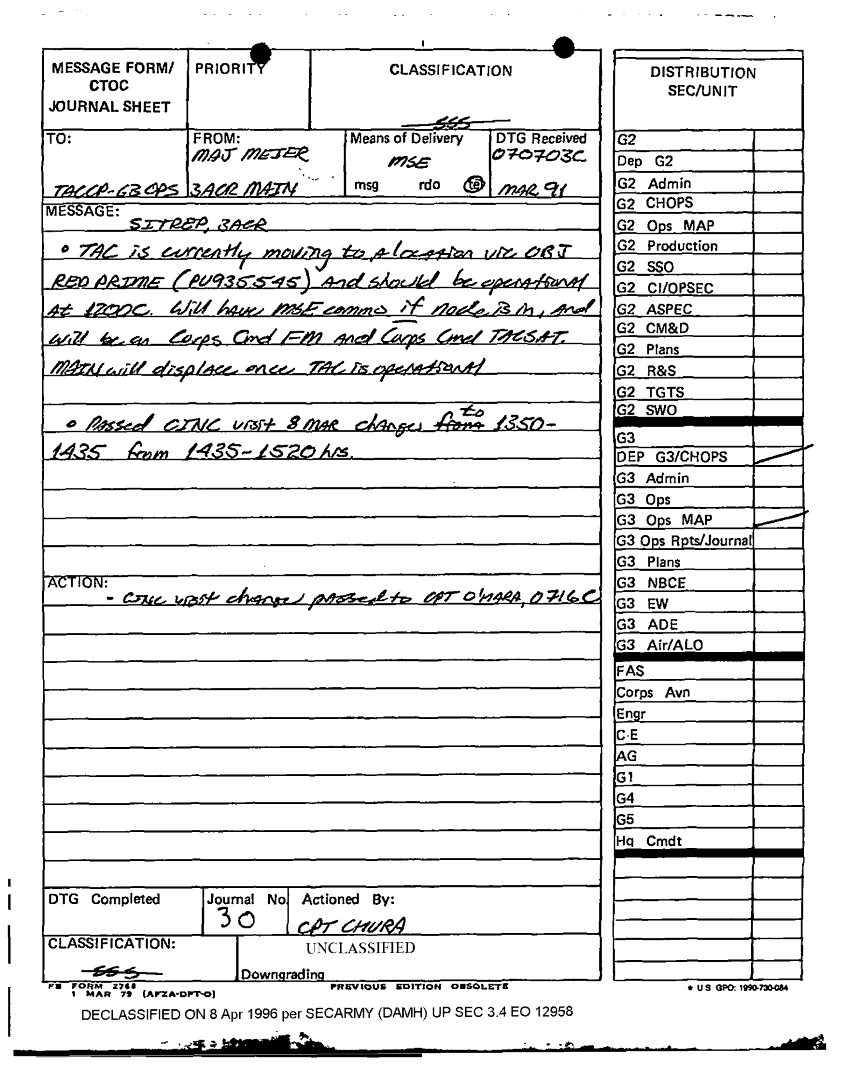 MESSAGE FORM/
CTOC
JOURNAL SHEET
PRIORITY
CLASSIFICATION
SSS
TO:
TACCP-G3 OPS
FROM:
MAJ MEIER
3ACR MAIN
Means of Delivery
MSE
msg rdo te
DTG Received
070703C
MAR 91
MESSAGE:
SITREP, 3ACR
• TAC is currently moving to a location vic OBJ
RED PRIME (PU935545) And should be operational
At 1200C. Will have MSE commo if node is in, and
will be on Corps Cmd FM and Corps Cmd TACSAT.
MAIN will displace once TAC is operational
• Passed CINC visit 8 MAR changes from to 1350-
1435 from 1435-1520 hrs.
ACTION:
- CINC visit changes passed to CPT O'MARA, 0716C
DTG Completed
Journal No.
30
Actioned By:
CPT CHURA
CLASSIFICATION:
SSS
UNCLASSIFIED
Downgrading
FB FORM 2768
1 MAR 79 (AFZA-DPT-O)
PREVIOUS EDITION OBSOLETE
DISTRIBUTION
SEC/UNIT
G2
Dep G2
G2 Admin
G2 CHOPS
G2 Ops MAP
G2 Production
G2 SSO
G2 CI/OPSEC
G2 ASPEC
G2 CM&D
G2 Plans
G2 R&S
G2 TGTS
G2 SWO
G3
DEP G3/CHOPS
G3 Admin
G3 Ops
G3 Ops MAP
G3 Ops Rpts/Journal
G3 Plans
G3 NBCE
G3 EW
G3 ADE
G3 Air/ALO
FAS
Corps Avn
Engr
C-E
AG
G1
G4
G5
Hq Cmdt
* U S GPO: 1990-730-084
DECLASSIFIED ON 8 Apr 1996 per SECARMY (DAMH) UP SEC 3.4 EO 12958